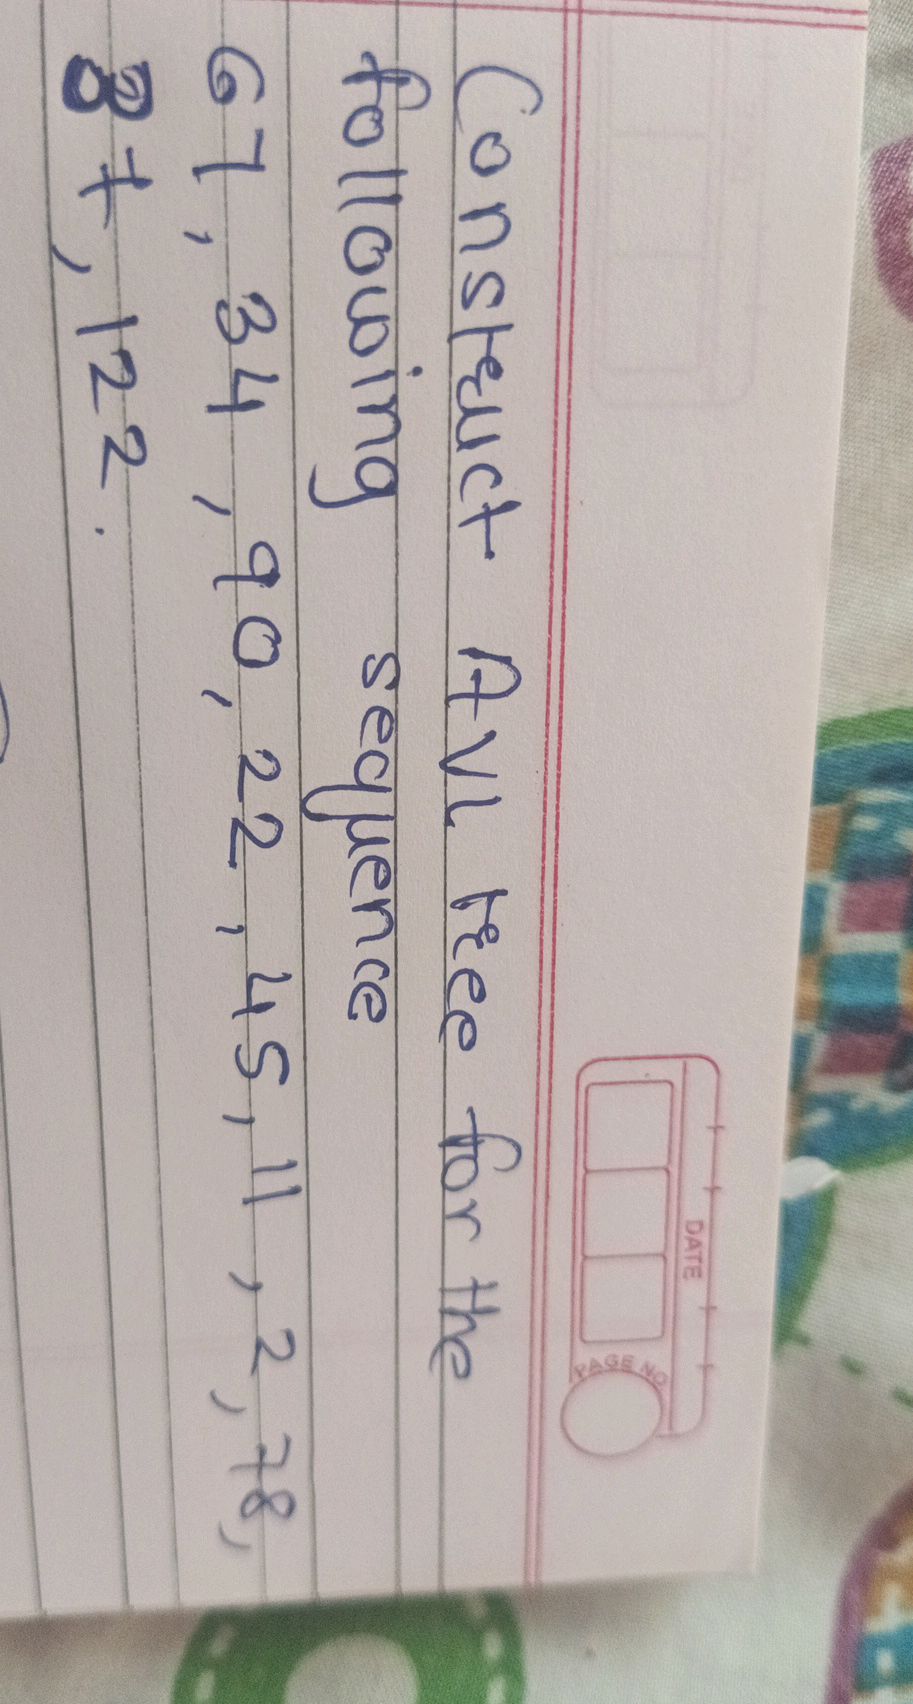 DATE
PAGE NO.
Construct AVL tree for the
following sequence
67, 34, 90, 22, 45, 11, 2, 78,
37, 122.